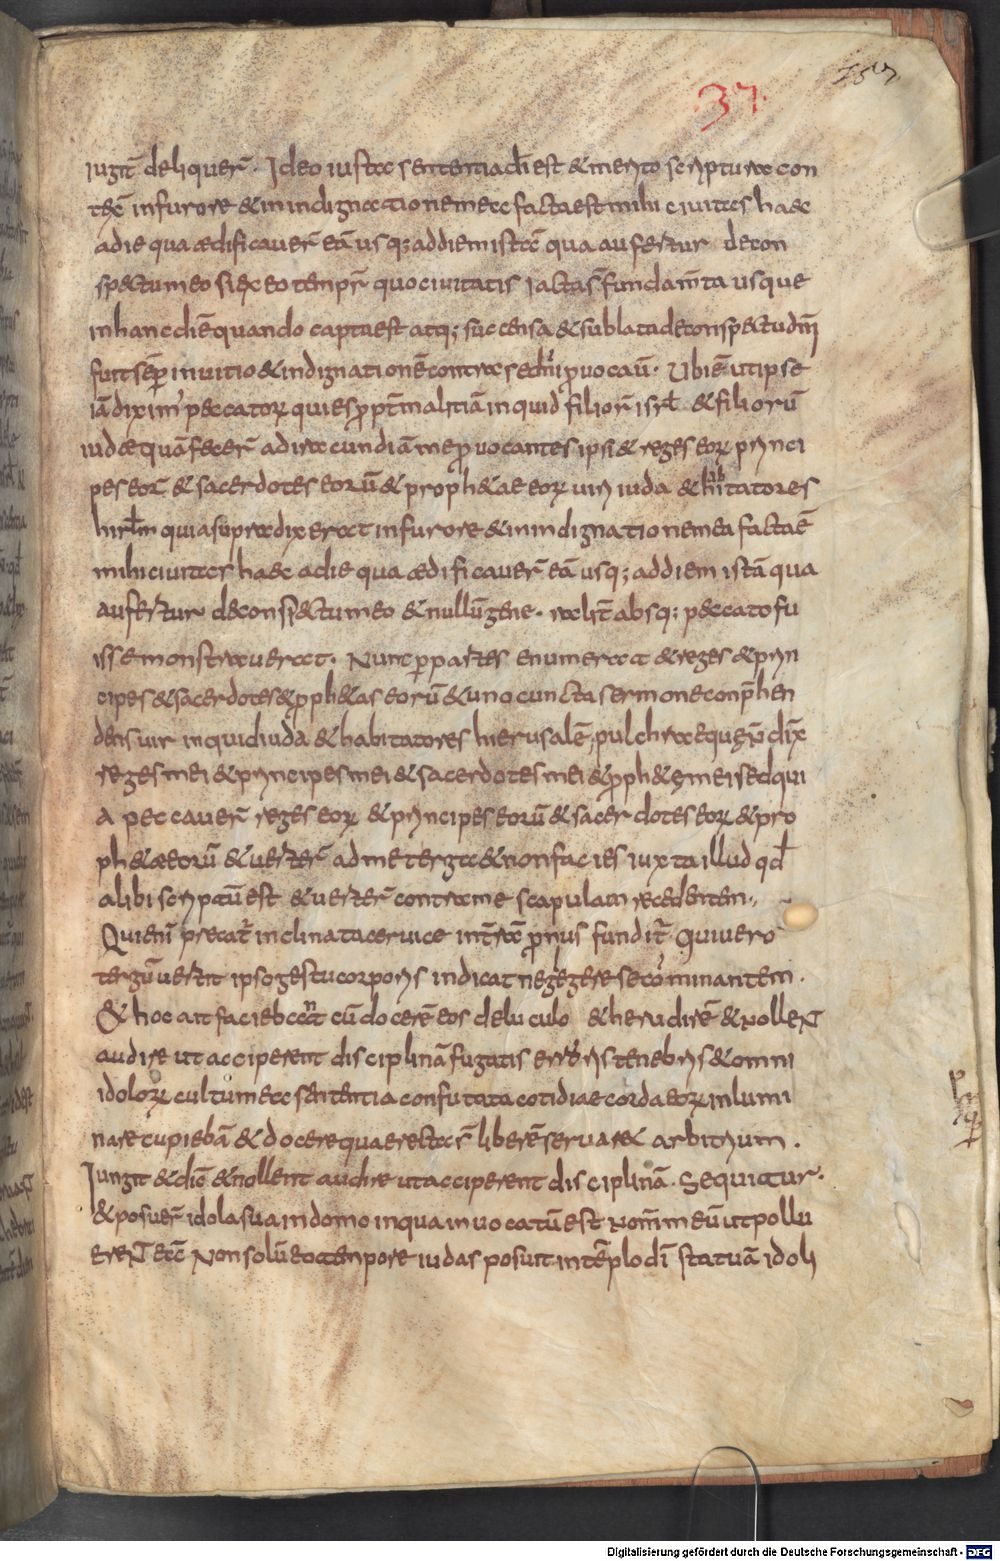 257
37
iugit̄ deliquer̄. Ideo iusta sententia dī est & merito scriptura con
tex̄ in furore & in indignationemea facta est mihi ciuitas haec
a die qua ædificauer̄ eā usq; ad diem istā qua aufertur de con
spectu meo si ex eo tempr̄ quo ciuitatis iacta s̄ fundam̄ta usque
in hanc diē quando capta est atq; succensa & sublata de conspectu dn̄i
fuit sēp in uitio & indignationē contra se dn̄i ꝓuocaū. Ubi ē utipse
iā diximꝰ peccatorꝝ quies ꝓpt̄ malitiā inquid filior̄ isrl̄ & filiorū
iudæ quā fecer̄ ad iracundiā me ꝓuocantes ipsi & reges eorꝝ princi
pes eor̄ & sacerdotes eorū & proph&ae eorꝝ uiri iuda & hab̄itatores
hirl̄m quia supra dixerat in furore & in indignatione mea facta ē
mihi ciuitas haec a die qua ædificauer̄ eā usq; ad diem istā qua
aufertur de conspectu meo & nullū gene. ralit̄ absq; peccato fu
isse monstrauerat. Nunc per partes enumerat & reges & prin
cipes & sacerdotes & ꝓph&as eorū & uno cuncta sermone conp̄hen
dens uir inquid iuda & habitatores hierusalē, pulchrae quē n̄ dix̄
reges mei & principes mei & sacerdotes mei & ꝓph&ę mei sed qui
a peccauer̄ reges eorꝝ & principes eorū & sacerdotes eorꝝ & pro
ph&æ eorū & uerter̄ ad me terga & non facies iuxta illud qđ
alibi scriptū est & uerter̄ contra me scapulam recedentem,,
Qui eni precat̄ inclinata ceruice in t̄ra pronus fundit̄ qui uero
tergū uertit ipso gestu corporis indicat negegere se cominantem.
& hoc ait faciebant cū docerē eos deluculo & herudirē & nollent
audire ut acciperent disciplinā fugatis errorīs tenebris & omni
idolorꝝ cultu mea sententia confutata cotidiae corda eorꝝ inlumi
nare cupiebā & docere quae recta s̄ liberē seruare arbitrium.
Iungit & dic̄ & nollent audire ut acciperent disciplinā. Sequitur.
& posuer̄ idola sua in domo in qua inuocatū est nom̄ meū ut pollu
erent eā Non solū eo tempore iudas posuit in tēplo dī statuā idoli
Digitalisierung gefördert durch die Deutsche Forschungsgemeinschaft - DFG